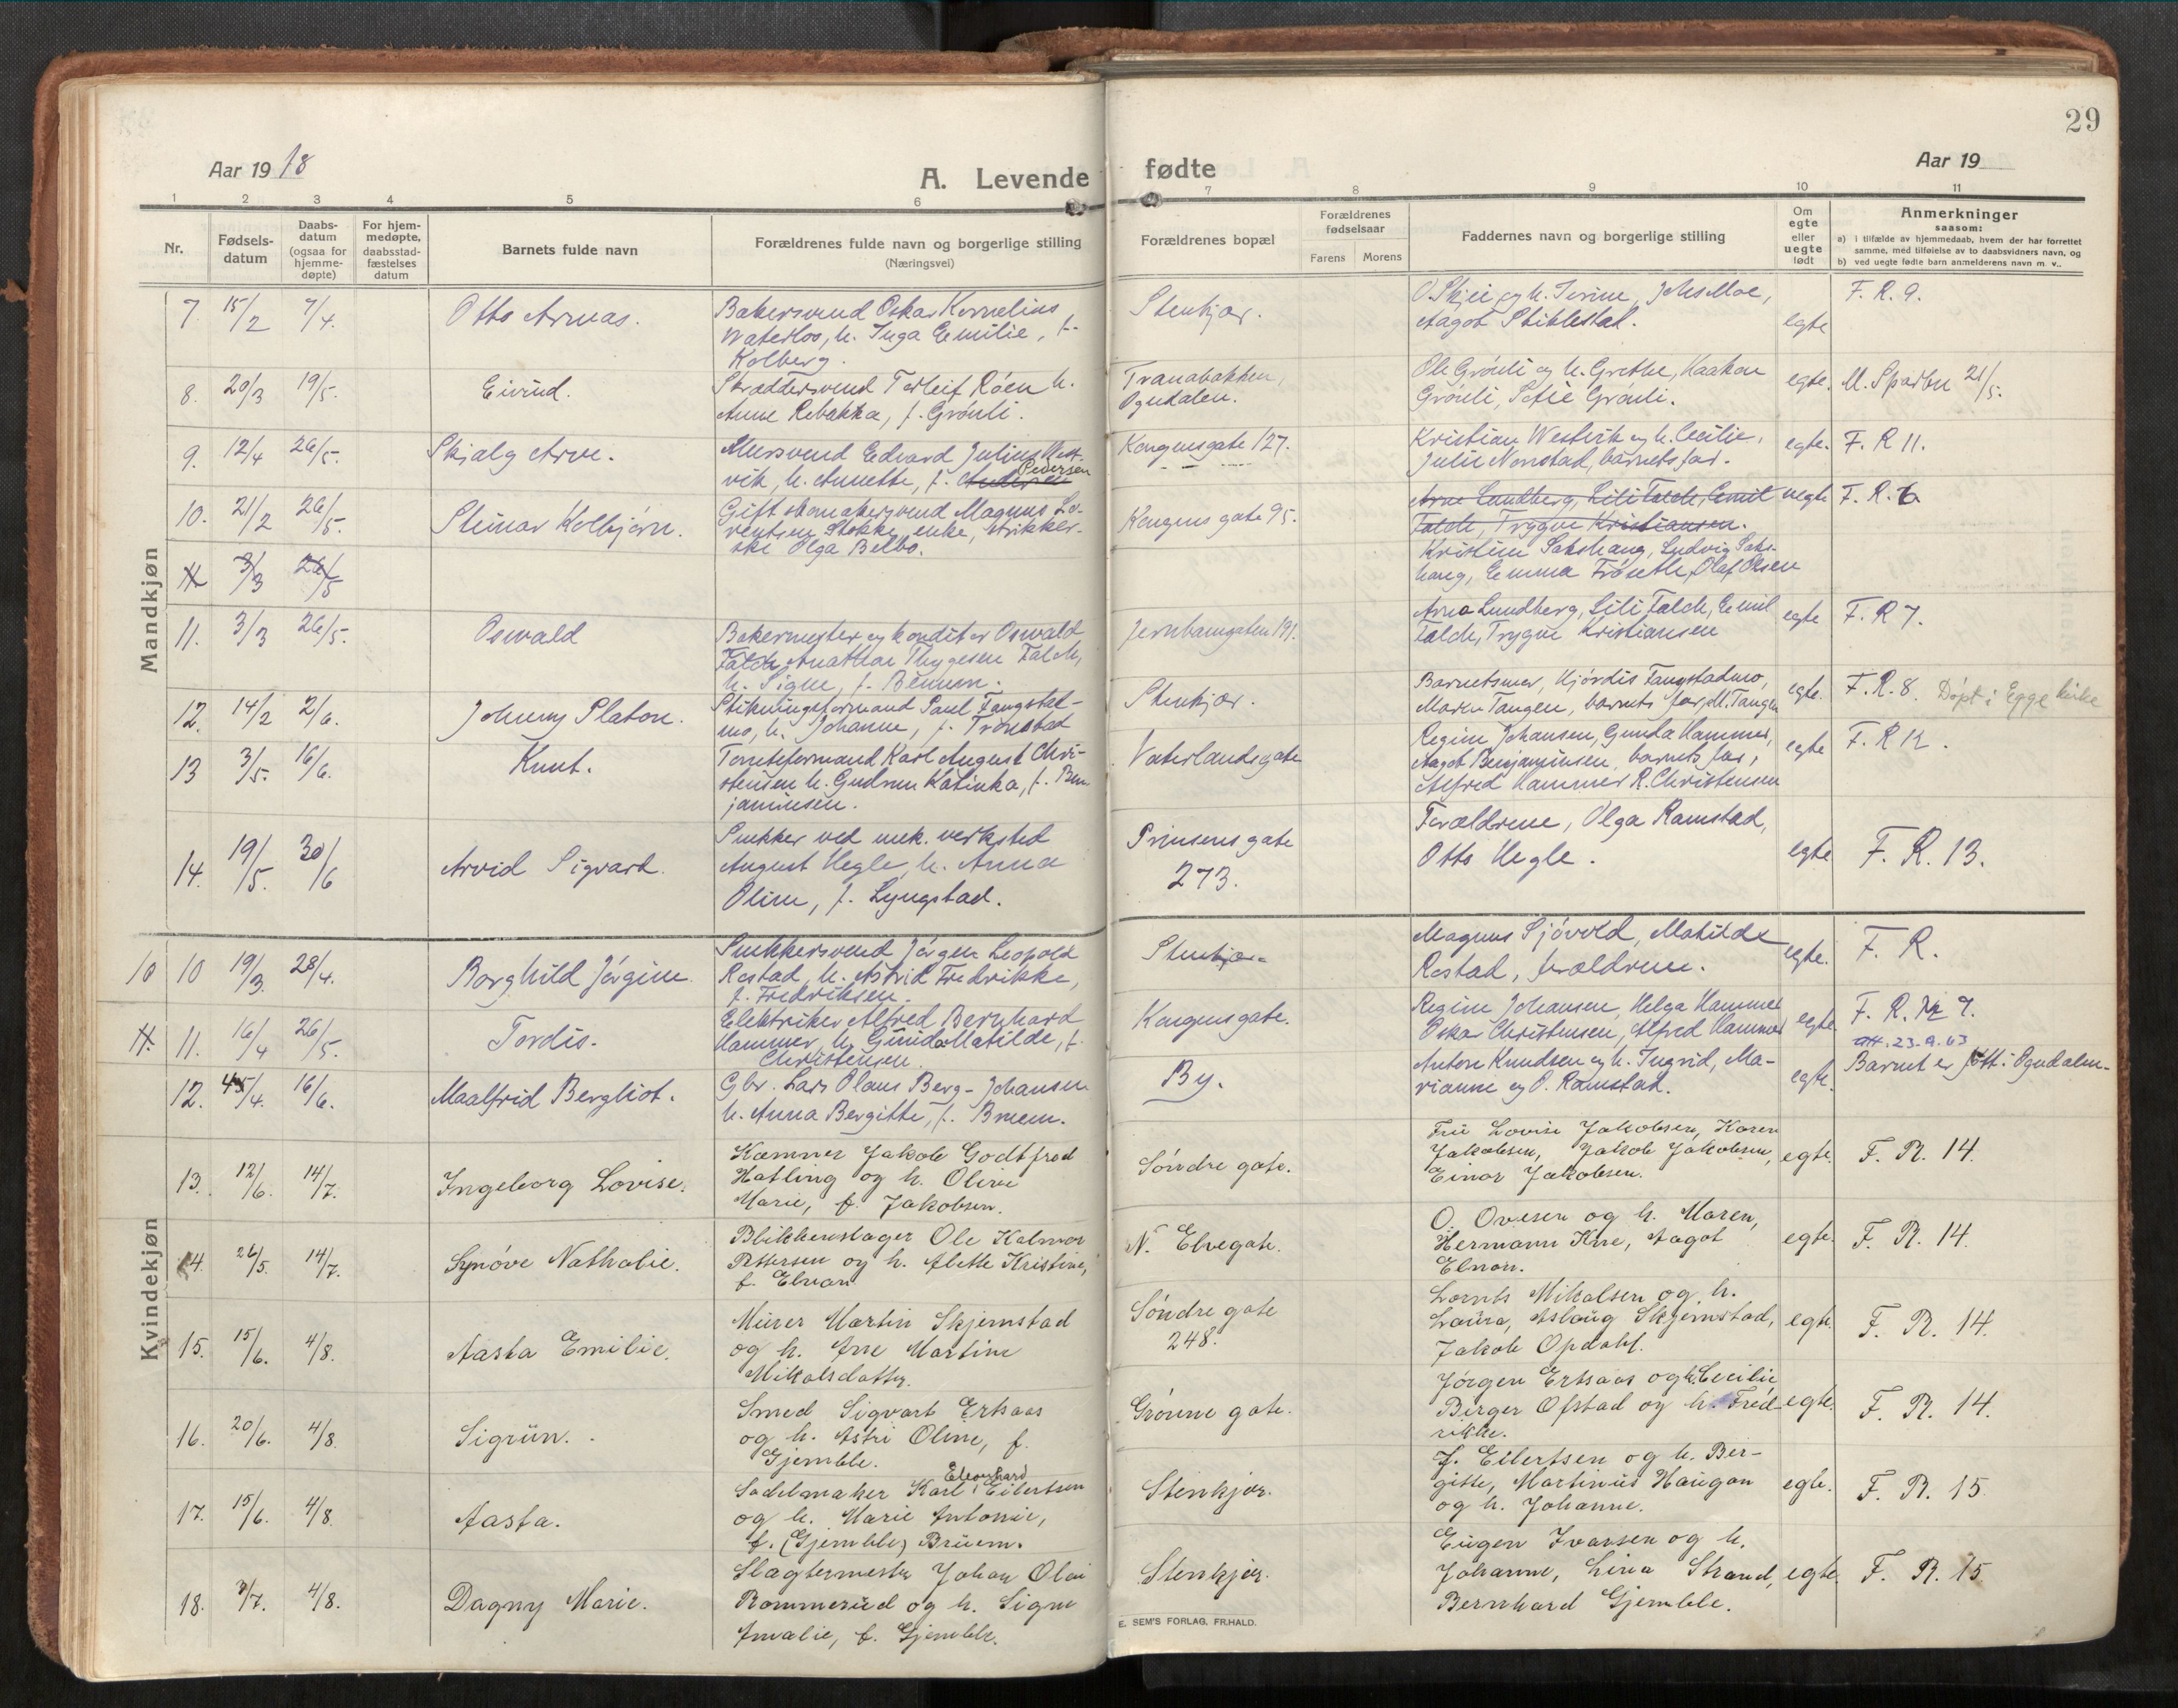 29
Aar 19 18
A. Levende
fødte
Aar 19
1 2 3 4 5 6 7 8 9 10 11
Nr.
Fødsels-
datum
Daabs-
datum
(ogsaa for
hjemme-
døpte)
For hjem-
medøpte,
daabsstad-
fæstelses
datum
Barnets fulde navn
Forældrenes fulde navn og borgerlige stilling
(Næringsvei)
Forældrenes bopæl
Forældrenes
fødselsaar
Farens Morens
Faddernes navn og borgerlige stilling
Om
egte
eller
uegte
født
Anmerkninger
saasom:
a) i tilfælde av hjemmedaab, hvem der har forrettet
samme, med tilføielse av to daabsvidners navn, og
b) ved uegte fødte barn anmelderens navn m. v..
Mandkjøn
7. 15/2 7/4. Otto Arnuas.
Bakersvend Oskar Kornelius
Waterloo, h. Inga Emilie, f.
Kolberg.
Stenkjær.
O. Skjei og h. Serine, Johs Moe,
Aagot Stiklestad.
egte
F. R. 9.
8. 20/3 19/5. Eivind.
Skræddersvend Torleif Røen h.
Anne Rebakka, f. Grønli.
Tranabakken,
Ogndalen.
Ole Grønli og h. Grethe, Haakon
Grønli, Sofie Grønli.
egte.
M. Sparbu 21/5.
9. 12/4 26/5. Skjalg Arve.
Mursvend Edvard Julius Vest-
vik, h. Annette, f. Andersen Pedersen
Kongensgate 127.
Kristian Westvik og h. Cecilie,
Julie Nonstad, barnets far.
egte.
F. R 11.
10. 21/2 26/5. Steinar Kolbjørn.
Gift skomakersvend Magnus Lo-
rentsen Stokke, enke, strikker-
ske Olga Belbo.
Kongens gate 95.
Arne Lundberg, Lili Falch, Emil
Falch, Trygve Kristiansen.
Kristine Sakshaug, Ludvig Saks-
haug, Emma Frøseth, Olaf Olsen
uegte
F. R. 6
11 3/3 26/5
11. 3/3 26/5. Oswald
Bakermester og konditor Oswald
Falch Anathar Thygesen Falch,
h. Signe, f. Benum.
Jernbanegaten 191.
Arne Lundberg, Lili Falch, Emil
Falch, Trygve Kristiansen
egte
F. R 7.
12. 14/2 2/6. Johnny Platon.
Stikningsformand Paul Fangstad-
mo, h. Johanne, f. Trönstad
Stenkjær.
Barnetsmor, Hjørdis Fangstadmo,
Maren Tangen, barnets far, M. Tangen
egte.
F. R. 8. Døpt i Egge kirke
13 3/5. 16/6. Knut.
Tomteformand Karl August Chri-
stensen h. Gudrun Katinka, f. Ben-
jaminsen.
Vaterlandsgate
Regine Johansen, Gunda Hammer,
Aagot Benjaminsen, barnets far,
Alfred Hammer R. Christensen
egte
F. R 12.
14. 19/5. 30/6 Arvid Sigvard.
Snekker ved mek. verksted
August Hegle, h. Anna
Oline, f. Lyngstad.
Prinsens gate
273.
Forældrene, Olga Ramstad,
Otto Hegle.
egte
F. R. 13.
Kvindekjøn
10 10 19/3. 28/4. Borghild Jørgine.
Snekkersvend Jørgen Leopold
Rostad, h. Astrid Fredrikke,
f. Fredriksen.
Stenkjær
Magnus Sjøvold, Matilde
Rostad, forældrene.
egte.
F. R.
11. 11. 16/4 26/5. Tordis.
Elektriker Alfred Bernhard
Hammer, h. Gunda Matilde, f.
Christensen.
Kongensgate.
Regine Johansen, Helga Hammer
Oskar Christensen, Alfred Hammer
egte.
F. R. 12 9.
att. 23.9.63
12. 45/4. 16/6. Maalfrid Bergliot.
Gbr. Lars Olaus Berg-Johansen
h. Anna Bergitte, f. Bruem.
By.
Anton Knudsen og h. Ingrid, Ma-
rianne og O. Ramstad.
egte.
Barnet er født i Ogndalen.
13. 12/6. 14/7. Ingeborg Lovise.
Kæmner Jakob Godtfred
Hatling og h. Olive
Marie, f. Jakobsen.
Søndre gate.
Frü Lovise Jakobsen, Karen
Jakobsen, Jakob Jakobsen,
Einar Jakobsen.
egte.
F. R. 14.
14. 26/5. 14/7. Synøve Nathalie.
Blikkenslager Ole Kalmar
Pettersen og h. Alette Kristine,
f. Elvran
N. Elvegate.
O. Ovesen og h. Maren,
Hermann Kne, Aagot
Elnan.
egte.
F. R. 14.
15. 15/6. 4/8. Aasta Emilie.
Mürer Martin Skjemstad
og h. Ane Martine
Mikalsdatter.
Søndre gate
248.
Lornts Mikalsen og h.
Laüra, Aslaüg Skjemstad,
Jakob Opdahl.
egte.
F. R. 14.
16. 20/6. 4/8. Sigrün.
Smed Sigvart Ertsaas
og h. Astri Oline, f.
Gjemble.
Grønne gate.
Jørgen Ertsaas og h. Cecilie
Birger Ofstad og h. Fred-
rikke.
egte.
F. R. 14.
17. 15/6. 4/8. Aasta.
Sadelmaker Karl Eleonhard Eilertsen
og h. Marie Antonie,
f. (Gjemble) Brüem.
Stenkjær.
J. Eilertsen og h. Ber-
gitte, Martinüs Haügan
og h. Johanne.
egte.
F. R. 15.
18. 3/7. 4/8. Dagny Marie.
Slagtermester Johan Olai
Rommerüd og h. Signe
Amalie, f. Gjemble.
Stenkjær.
Eügen Ivarsen og h.
Johanne, Lina Strand,
Bernhard Gjemble.
egte.
F. R. 15
E. SEM'S FORLAG. FR.HALD.